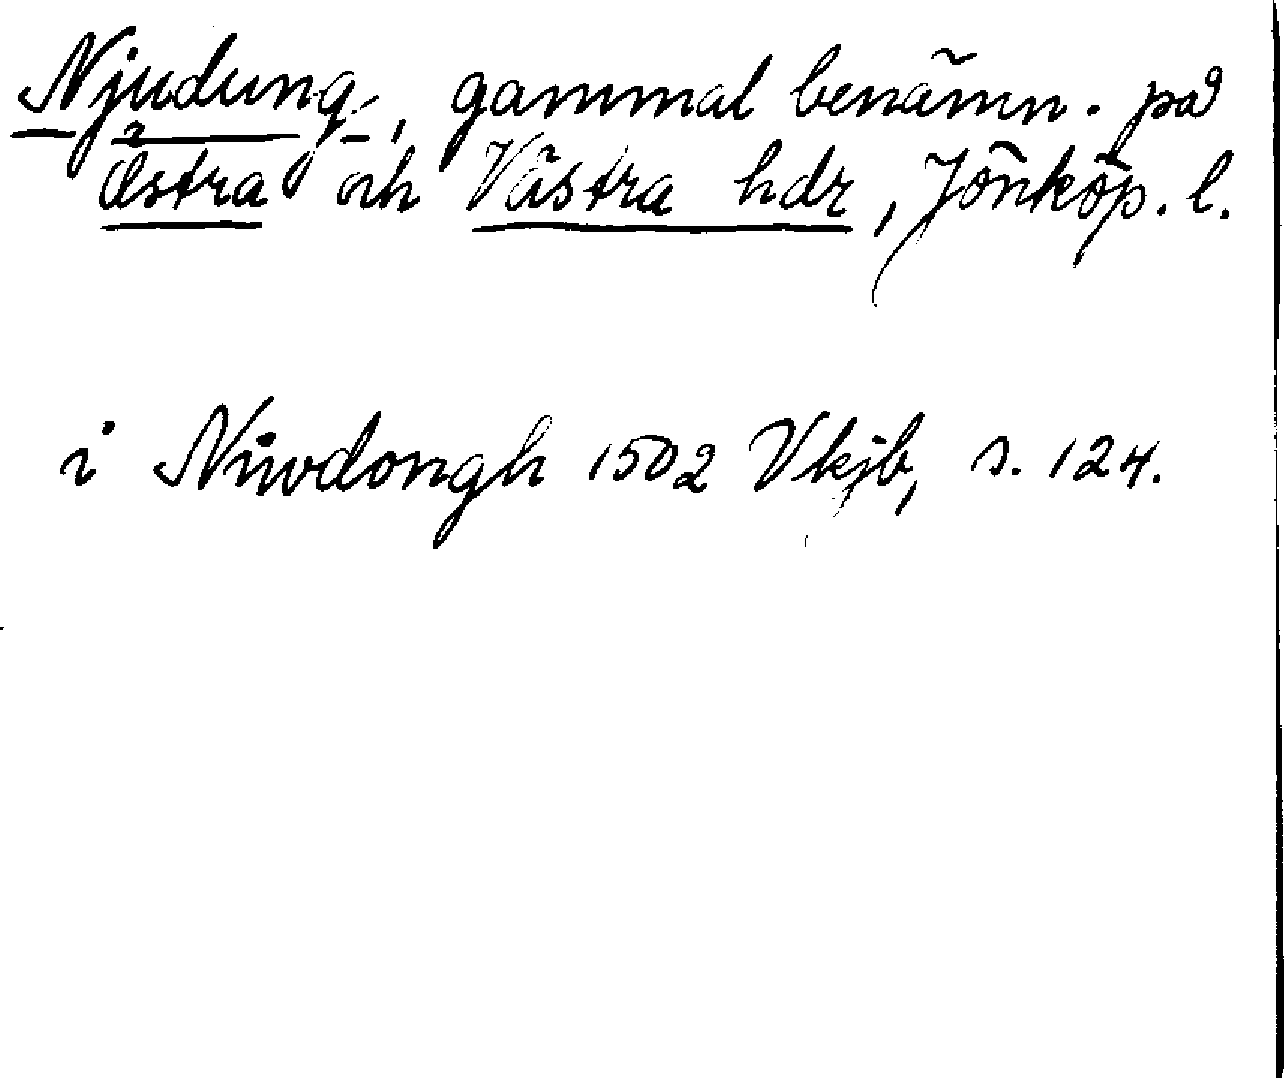 Njudung, gammal benämn. på
Östra och Västra hdr, Jönköp. l.
i Niwdongh 1502 Vkjb, s. 124.